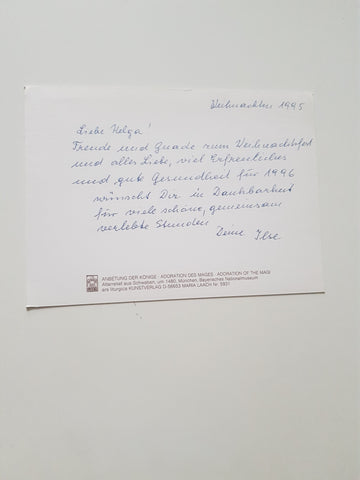 Weihnachten 1995
Liebe Helga!
Freude und Gnade zum Weihnachtsfest
und alles Liebe, viel Erfreuliches
und gute Gesundheit für 1996
wünscht Dir in Dankbarkeit
für viele schöne, gemeinsam
verlebte Stunden
Deine Ilse
ANBETUNG DER KÖNIGE · ADORATION DES MAGES · ADORATION OF THE MAGI
Altarrelief aus Schwaben, um 1480, München, Bayerisches Nationalmuseum
ars liturgica KUNSTVERLAG D-56653 MARIA LAACH Nr. 5931